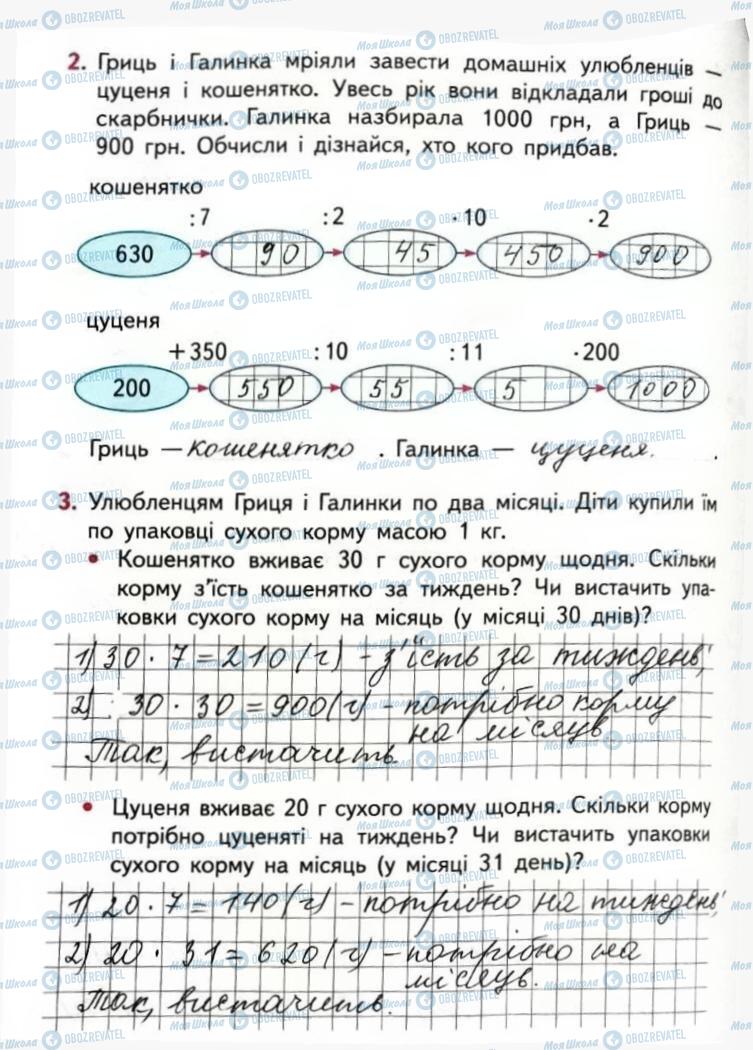 2. Гриць і Галинка мріяли завести домашніх улюбленців —
цуценя і кошенятко. Увесь рік вони відкладали гроші до
скарбнички. Галинка назбирала 1000 грн, а Гриць —
900 грн. Обчисли і дізнайся, хто кого придбав.
кошенятко
:7 :2 ·10 ·2
630 90 45 450 900
цуценя
+350 :10 :11 ·200
200 550 55 5 1000
Гриць — кошенятко . Галинка — цуценя. .
3. Улюбленцям Гриця і Галинки по два місяці. Діти купили їм
по упаковці сухого корму масою 1 кг.
• Кошенятко вживає 30 г сухого корму щодня. Скільки
корму з’їсть кошенятко за тиждень? Чи вистачить упа-
ковки сухого корму на місяць (у місяці 30 днів)?
1) 30 · 7 = 210 (г) – з'їсть за тиждень;
2) 30 · 30 = 900 (г) – потрібно корму
на місяць
Так, вистачить.
• Цуценя вживає 20 г сухого корму щодня. Скільки корму
потрібно цуценяті на тиждень? Чи вистачить упаковки
сухого корму на місяць (у місяці 31 день)?
1) 20 · 7 = 140 (г) – потрібно на тиждень;
2) 20 · 31 = 620 (г) – потрібно на
місяць.
Так, вистачить.